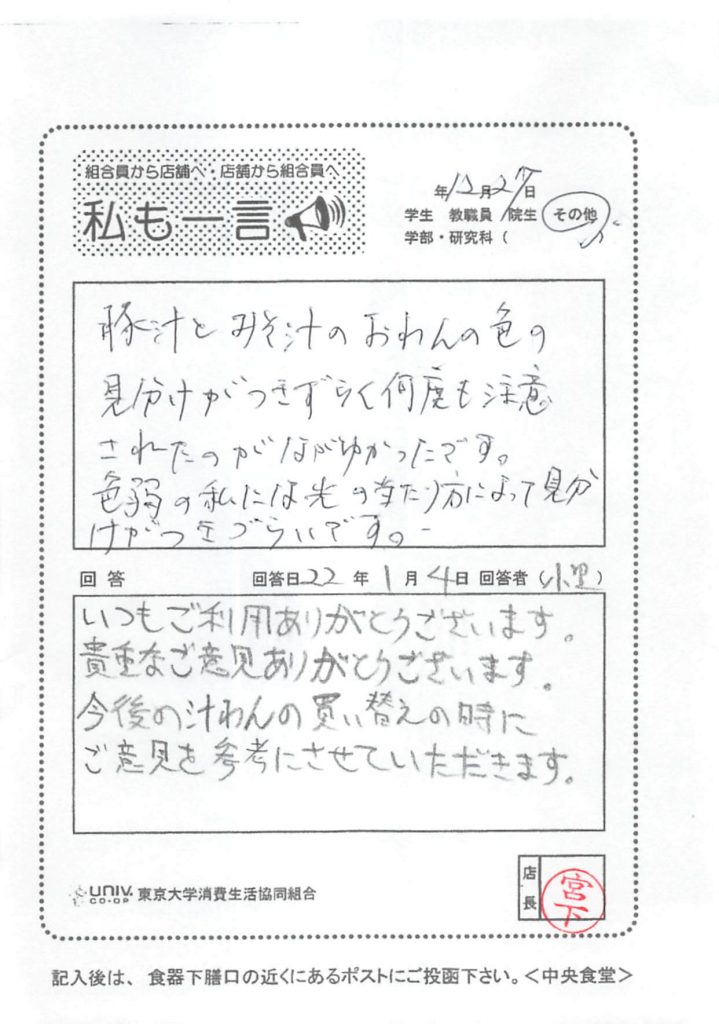 組合員から店舗へ・店舗から組合員へ
私も一言
年12月27日
学生 教職員 院生 その他
学部・研究科(
)
豚汁とみそ汁のおわんの色の
見分けがつきずらく何度も注意
されたのがはがゆかったです。
色弱の私には光の当たり方によって見分
けがつきづらいです。
回答 回答日22年1月4日 回答者(小里)
いつもご利用ありがとうございます。
貴重なご意見ありがとうございます。
今後の汁わんの買い替えの時に
ご意見を参考にさせていただきます。
UNIV. CO-OP 東京大学消費生活協同組合
店長 宮下
記入後は、食器下膳口の近くにあるポストにご投函下さい。<中央食堂>